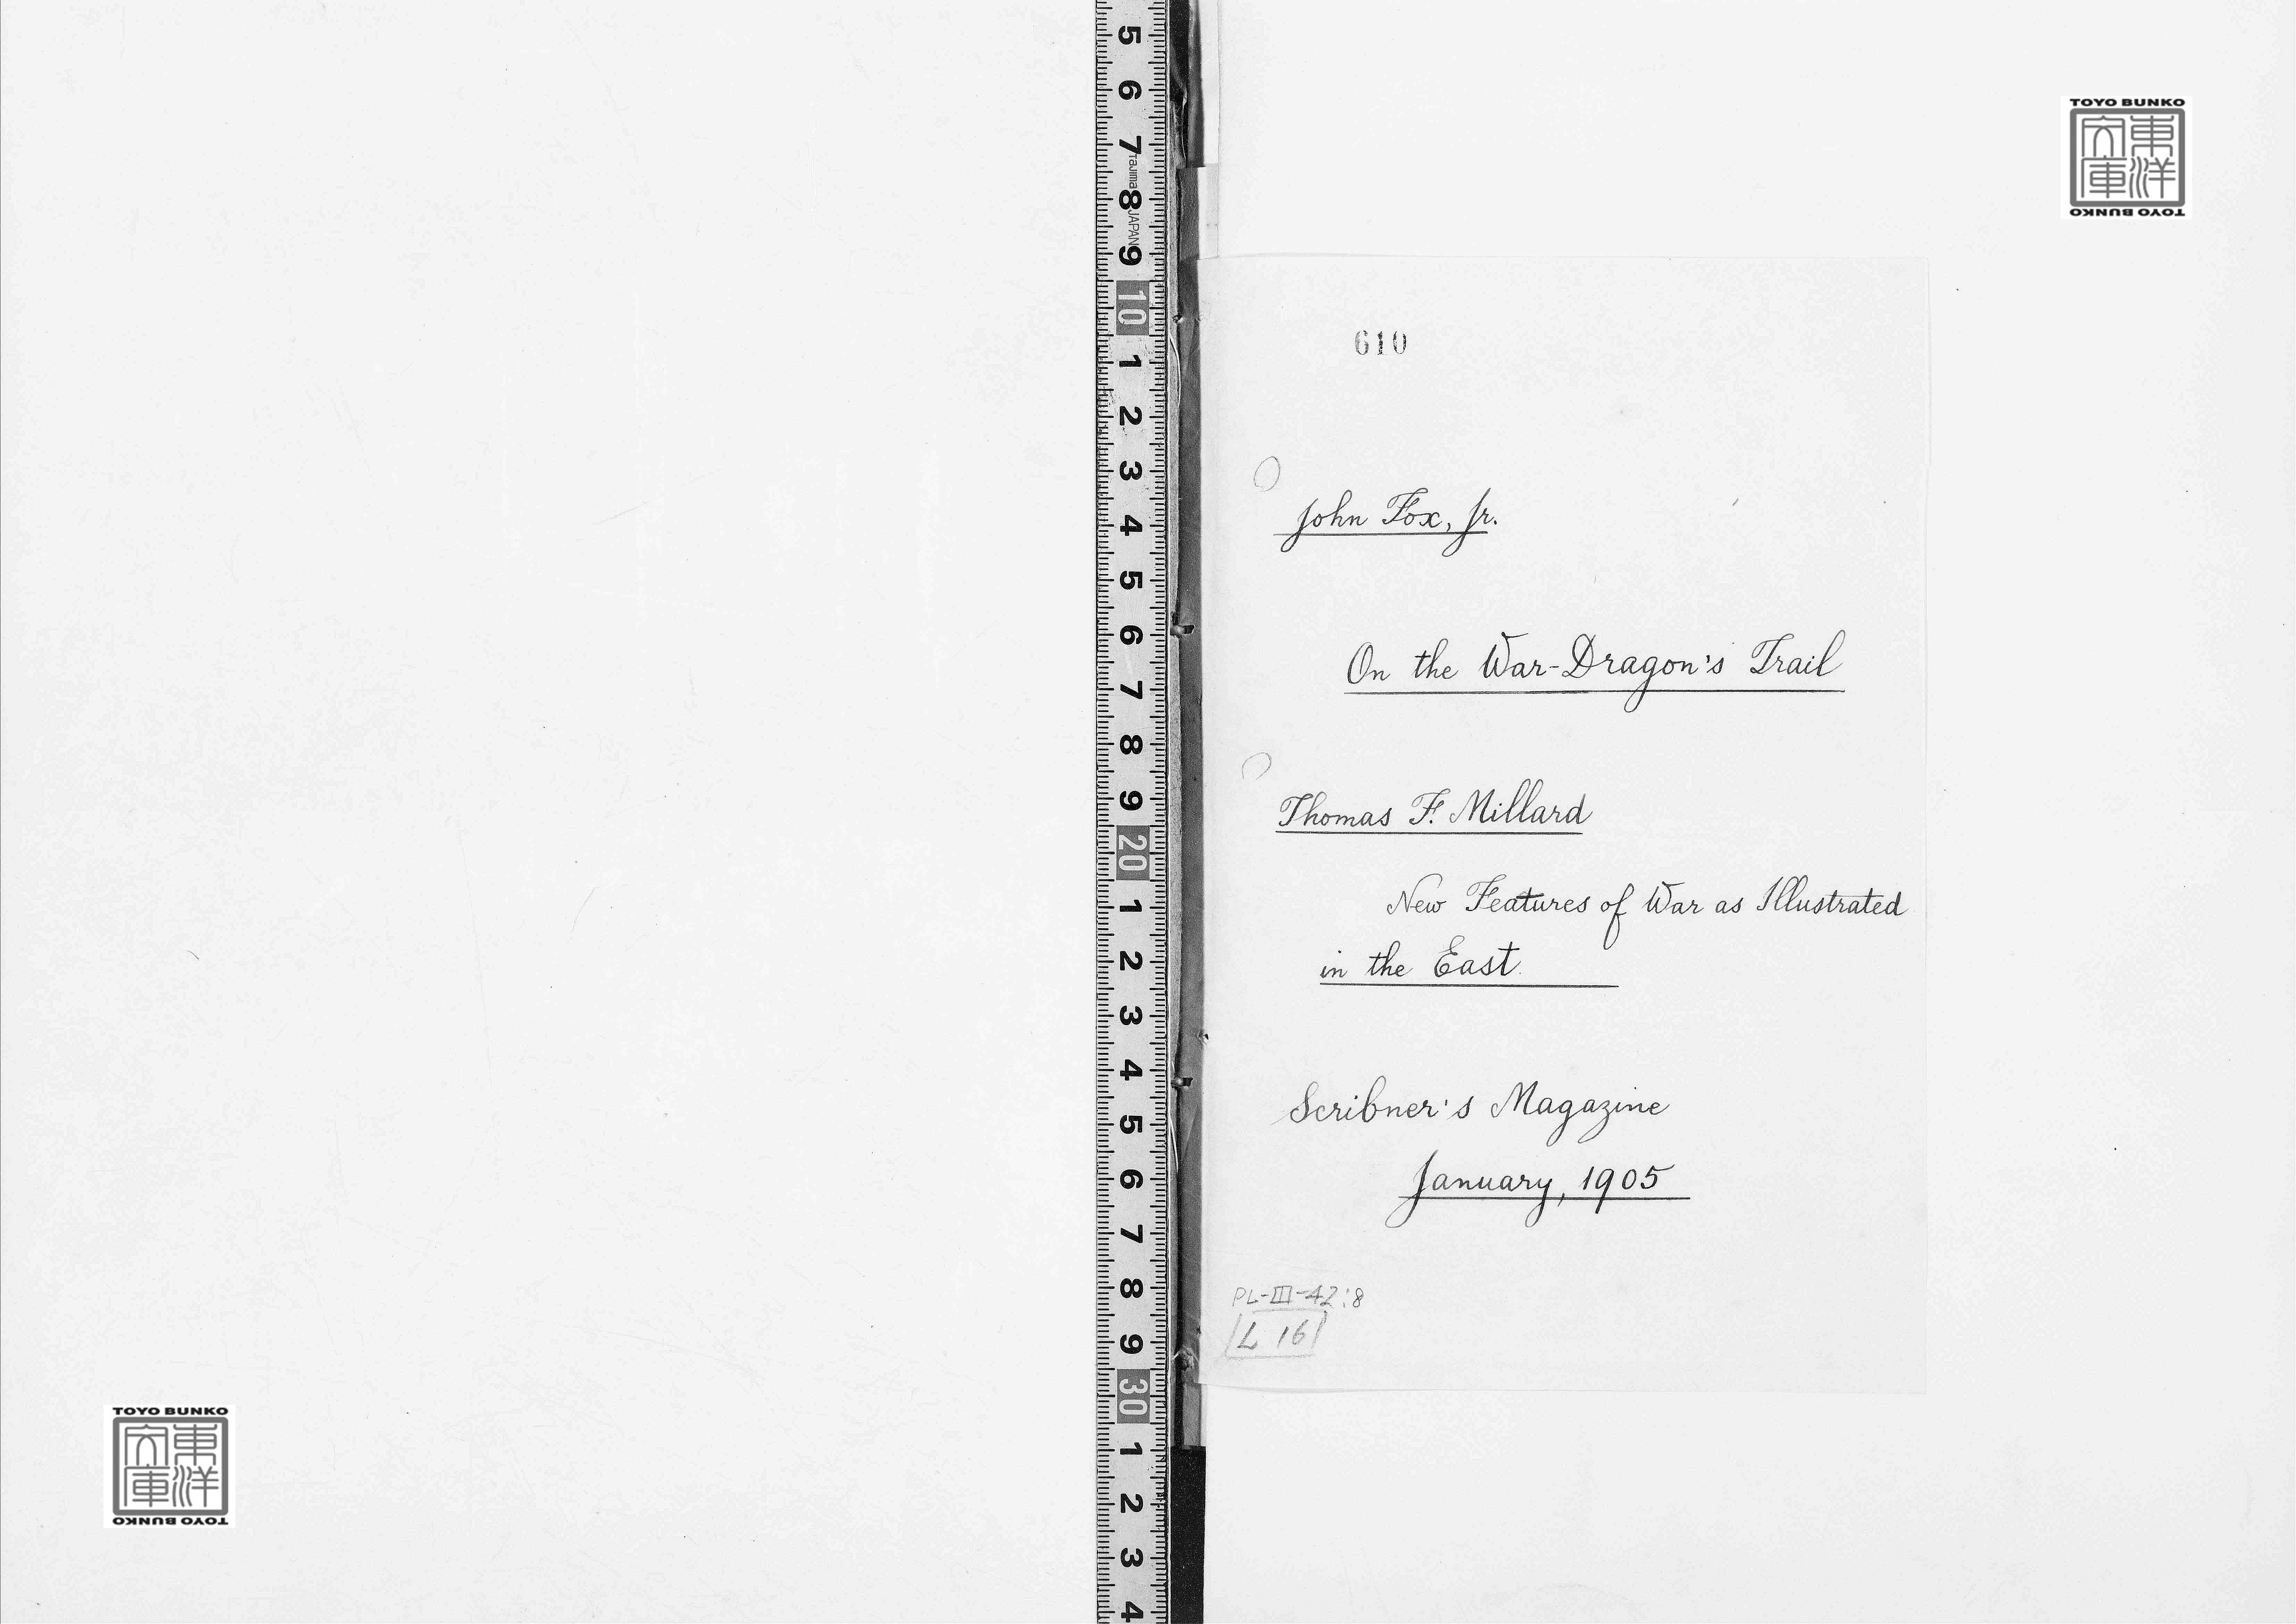 5
6
7
Tajima
8
JAPAN
9
10
1
2
3
4
5
6
7
8
9
20
1
2
3
4
5
6
7
8
9
30
1
2
3
4
TOYO BUNKO
東洋文庫
TOYO BUNKO
610
John Fox, Jr.
On the War-Dragon's Trail
Thomas F. Millard
New Features of War as Illustrated
in the East.
Scribner's Magazine
January, 1905
PL-III-42:8
L 16
TOYO BUNKO
東洋文庫
TOYO BUNKO